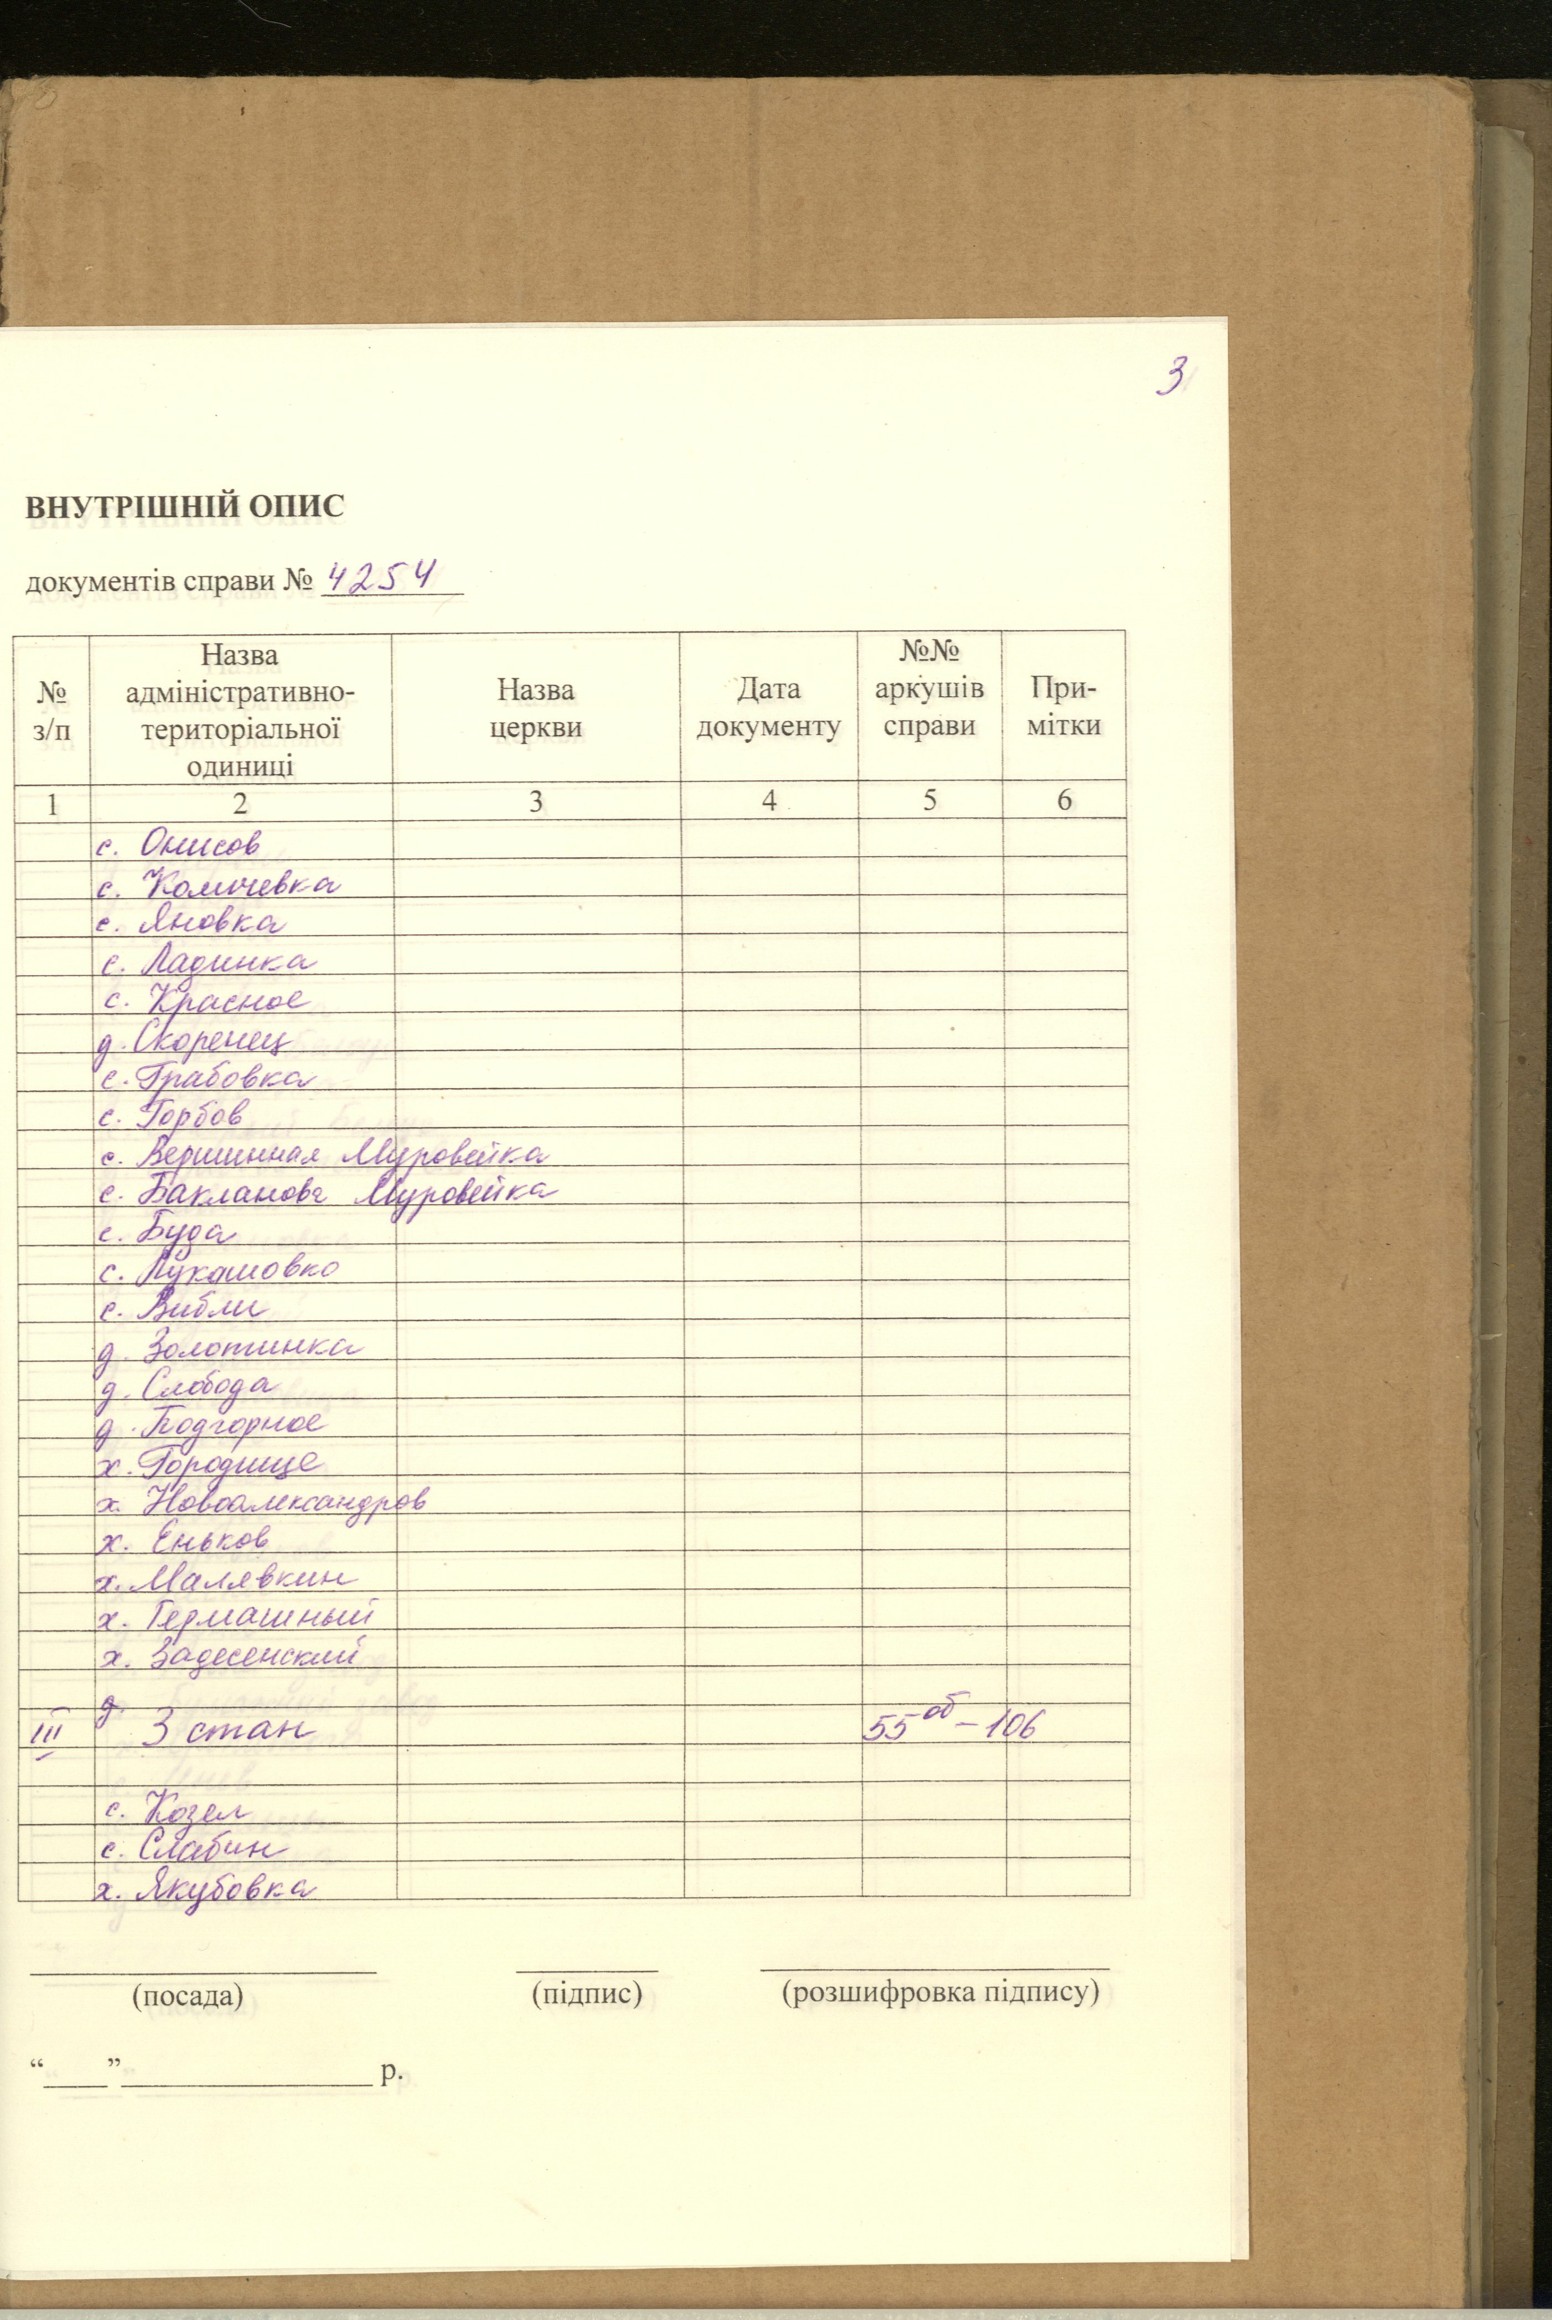 3
ВНУТРІШНІЙ ОПИС
документів справи № 4254
№ з/п
Назва адміністративно-територіальної одиниці
Назва церкви
Дата документу
№№ аркушів справи
Примітки
1 2 3 4 5 6
с. Онисов
с. Количевка
с. Яновка
с. Ладинка
с. Красное
д. Скоренец
с. Грабовка
с. Горбов
с. Вершинная Муровейка
с. Бакланова Муровейка
с. Буда
с. Лукашовка
с. Вибли
д. Золотинка
д. Слобода
д. Подгорное
х. Городище
х. Новоалександров
х. Еньков
х. Малявкин
х. Гермашный
х. Задесенский
д.
III 3 стан 55об – 106
с. Козел
с. Слабин
х. Якубовка
(посада) (підпис) (розшифровка підпису)
“____”________________ р.